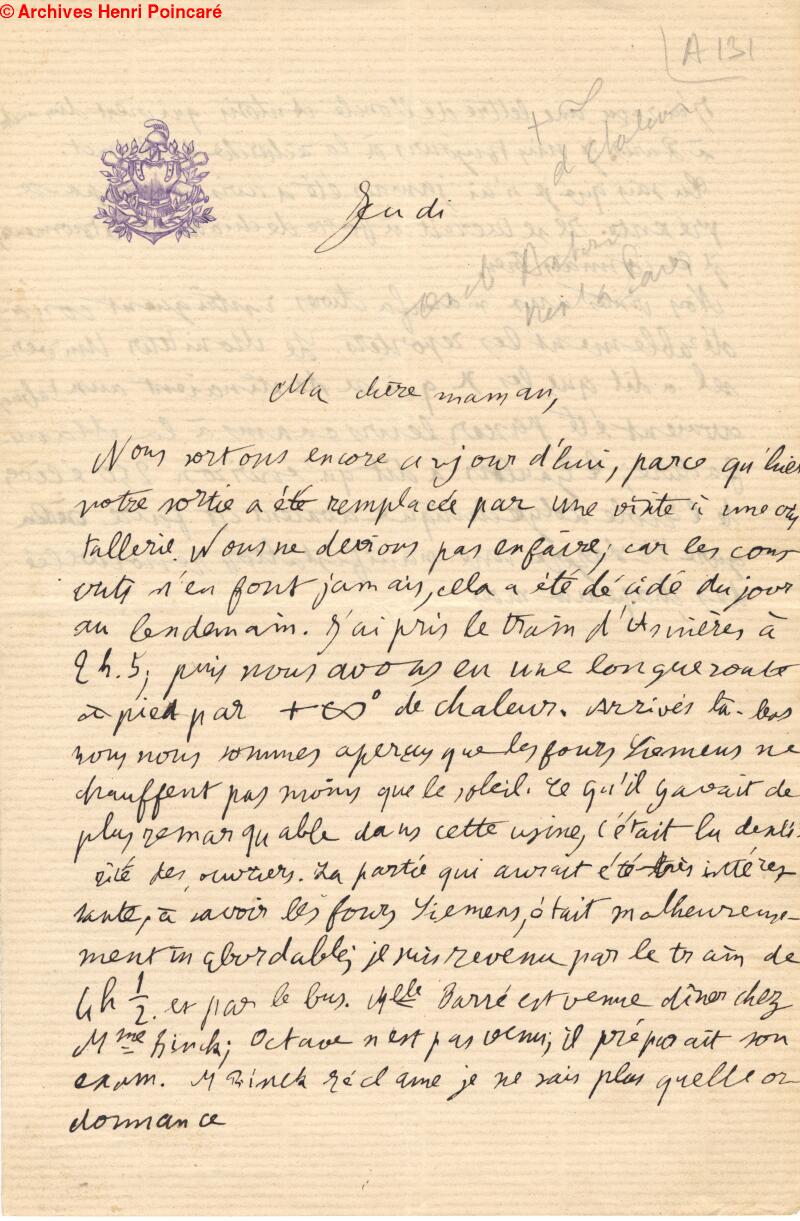 © Archives Henri Poincaré
A 131
+
d chaleur
Jeudi
Ma chère maman,
Nous sortons encore aujour d'hui, parce qu'hier
notre sortie a été remplacée par une visite à une cris
tallerie. Nous ne devions pas en faire; car les cons
crits n'en font jamais, cela a été décidé du jour
au lendemain. J'ai pris le train d'Asnières à
2 h. 5; puis nous avons eu une longue route
à pied par +∞° de chaleur. Arrivés là-bas
nous nous sommes aperçus que les fours Siemens ne
chauffent pas moins que le soleil. Ce qu'il y avait de
plus remarquable dans cette usine, c'était la dexté
rité des ouvriers. La partie qui aurait été très intéres
sante, à savoir les fours Siemens, était malheureuse
ment inabordable; je suis revenu par le train de
4h ½ et par le bus. Melle Barré est venue dîner chez
Mme Rinck; Octave n'est pas venu; il préparait son
exam. M Rinck réclame je ne sais plus quelle or
donnance